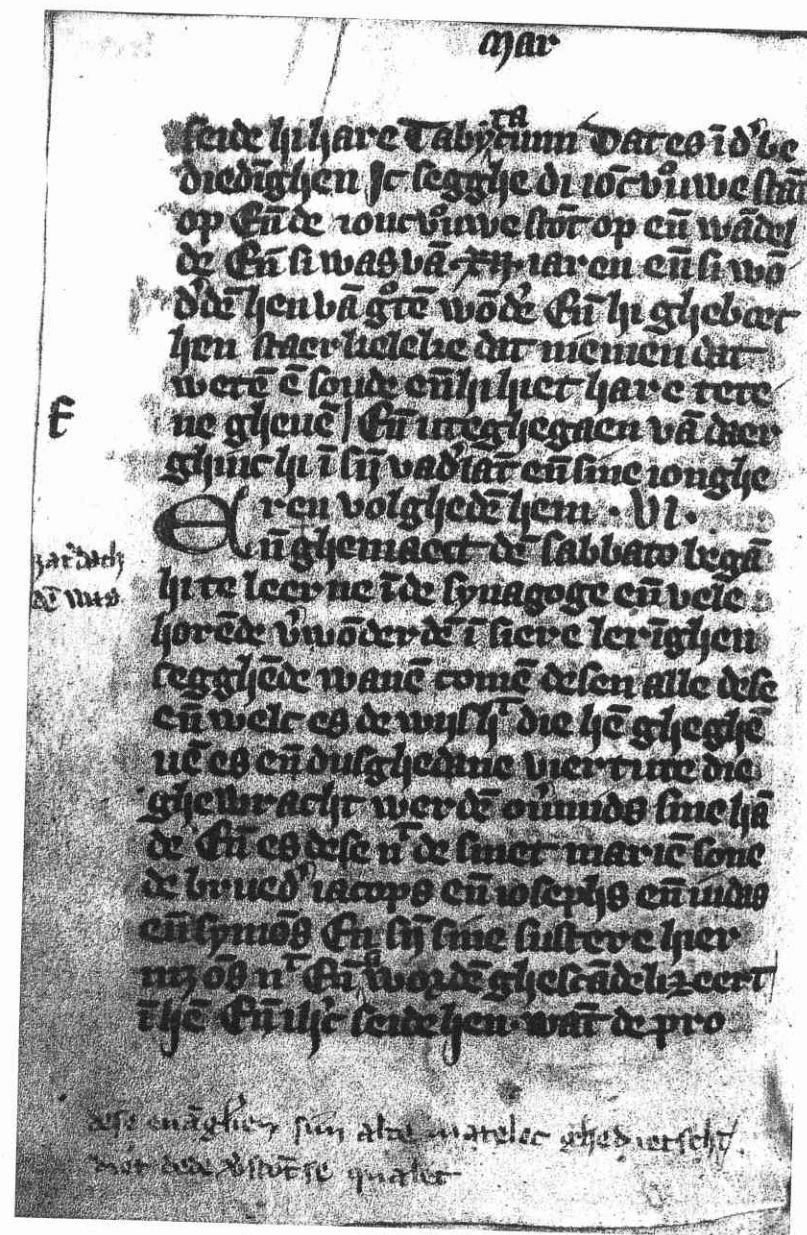 mar
seide hi hare Tabytatumi Dat es ī d'be
diedīghen Jc segghe di ioc̄vᵒuwe stāt
op En̄de ioncvᵒuwe stōt op en̄ wādel
de En̄ si was vā .xij. iaren en̄ si wō
d'dē hen vā gᵒtē wōd'e En̄ hi gheboet
hen staerkeleke dat niemen dat
wetē ē soude en̄ hi hiet hare tete
ne gheuē / En̄ uteghegaen vā daer
E
ghinc hi ī sij vad'lāt en̄ sine ionghe
ren volghedē hem . VI .
En̄ ghemaect dē sabbato begā
zat'dach
hi te leerne īde synagoge en̄ vele
horēde v'wōderdē ī siere lerīghen
segghēde wanē comē desen alle dese
en̄ welc es de wijshᵗ die hē gheghē
uē es en̄ dusghedane viertute die
ghewracht werdē ou'mids sine hā
de En̄ es dese nᵗ de smet mariē sone
de brued' iacops en̄ iosephs en̄ iudas
en̄ symōs En̄ sij sine sustere hier
mz ōs nᵗ En̄ wordē ghescādelizeert
ī hē En̄ ihc̄ seide hen wāt de pro
dese euāglien sijn alte matelec ghedietscht /
diet dede v'stōtse qualec